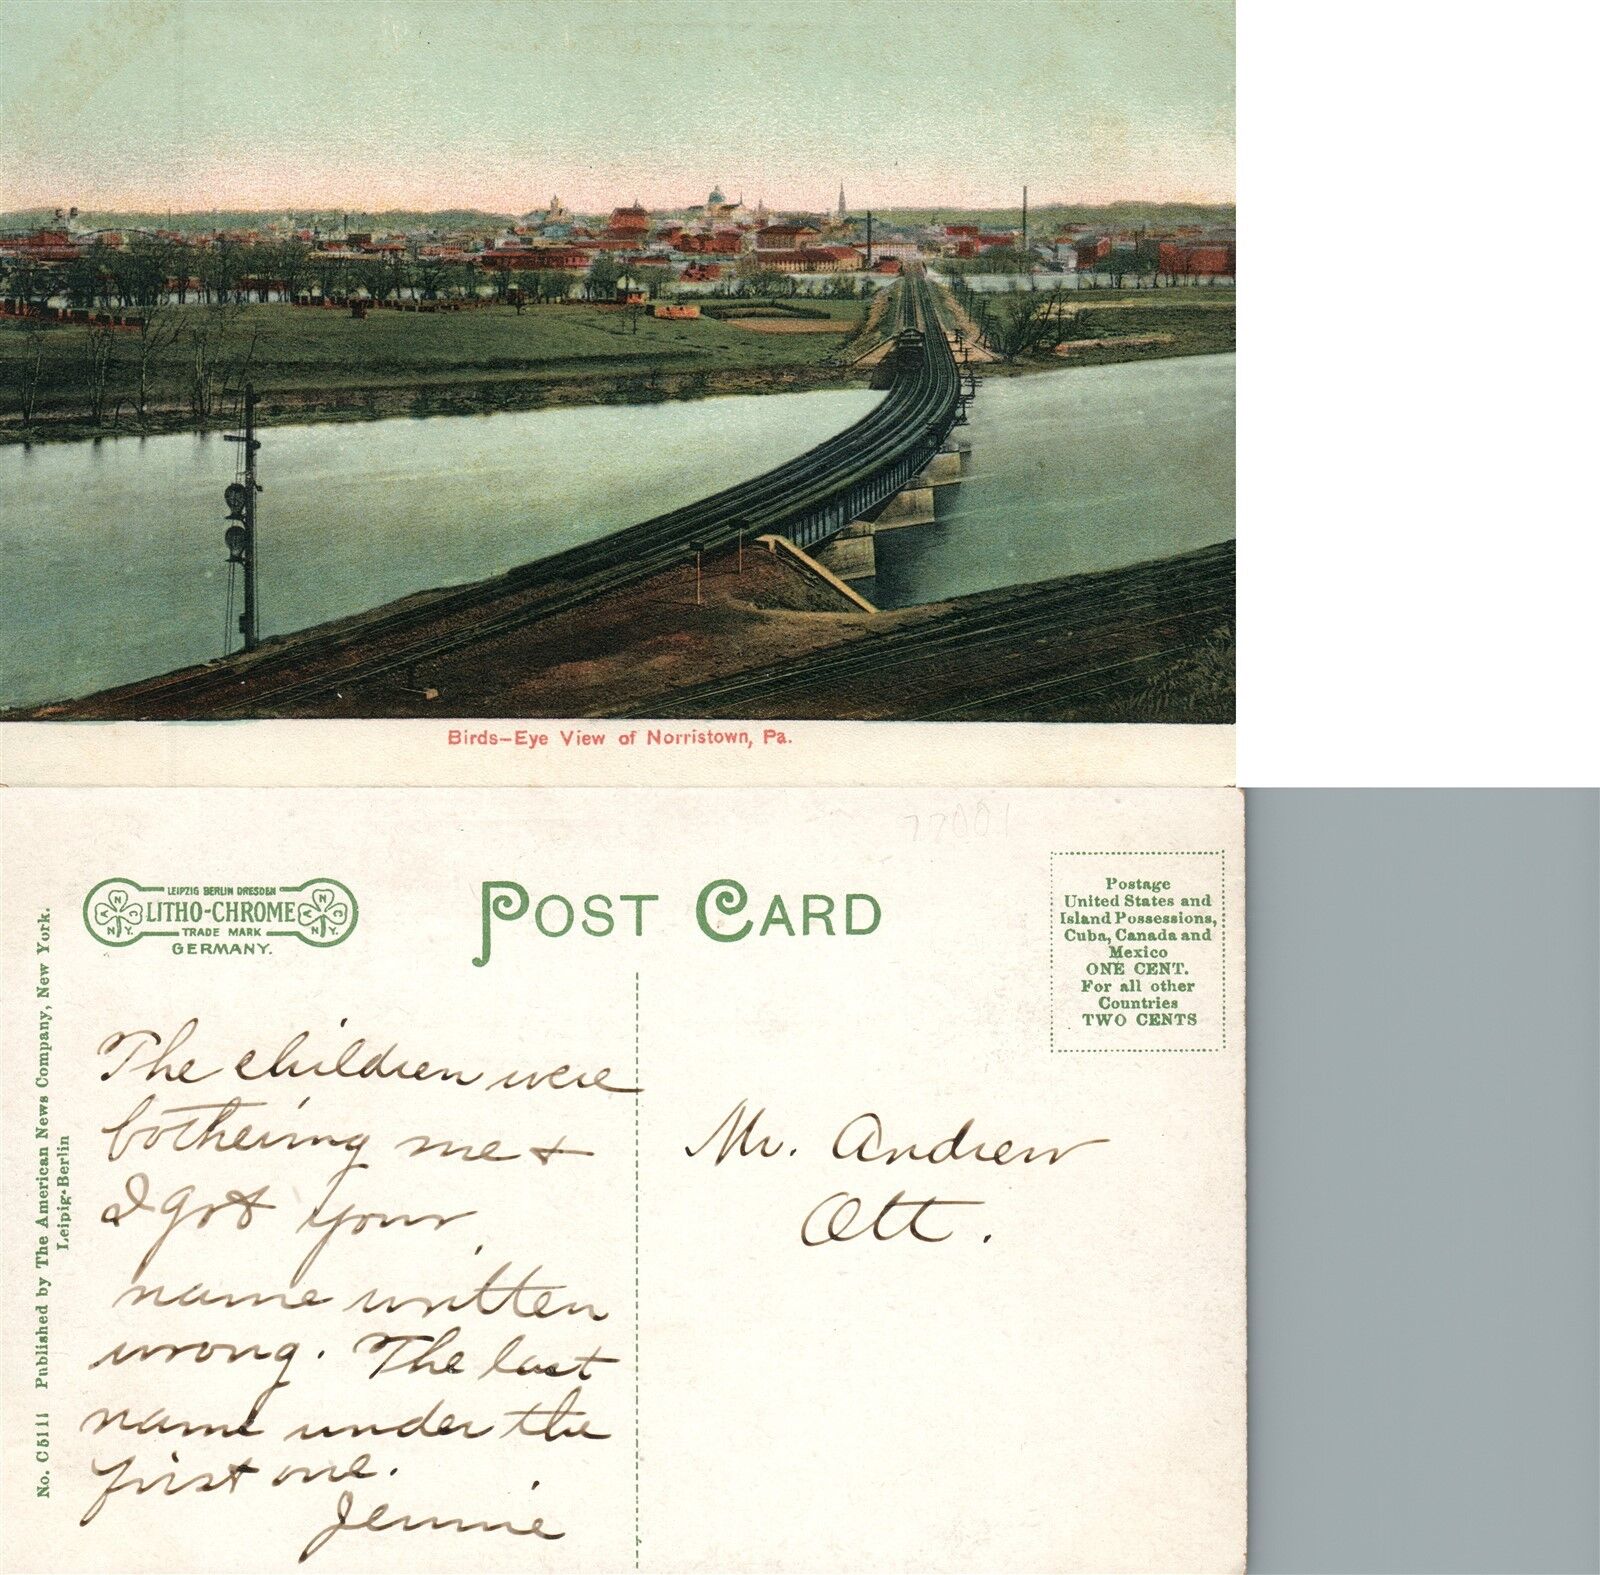 Birds-Eye View of Norristown, Pa.
77001
LEIPZIG BERLIN DRESDEN
LITHO-CHROME
TRADE MARK
GERMANY.
A N C
N.Y.
A N C
N.Y.
POST CARD
Postage
United States and
Island Possessions,
Cuba, Canada and
Mexico
ONE CENT.
For all other
Countries
TWO CENTS
No. C5111 Published by The American News Company, New York.
Leipig-Berlin
The children were
bothering me +
I got your
name written
wrong. The last
name under the
first one.
Jennie
Mr. Andrew
Ott.